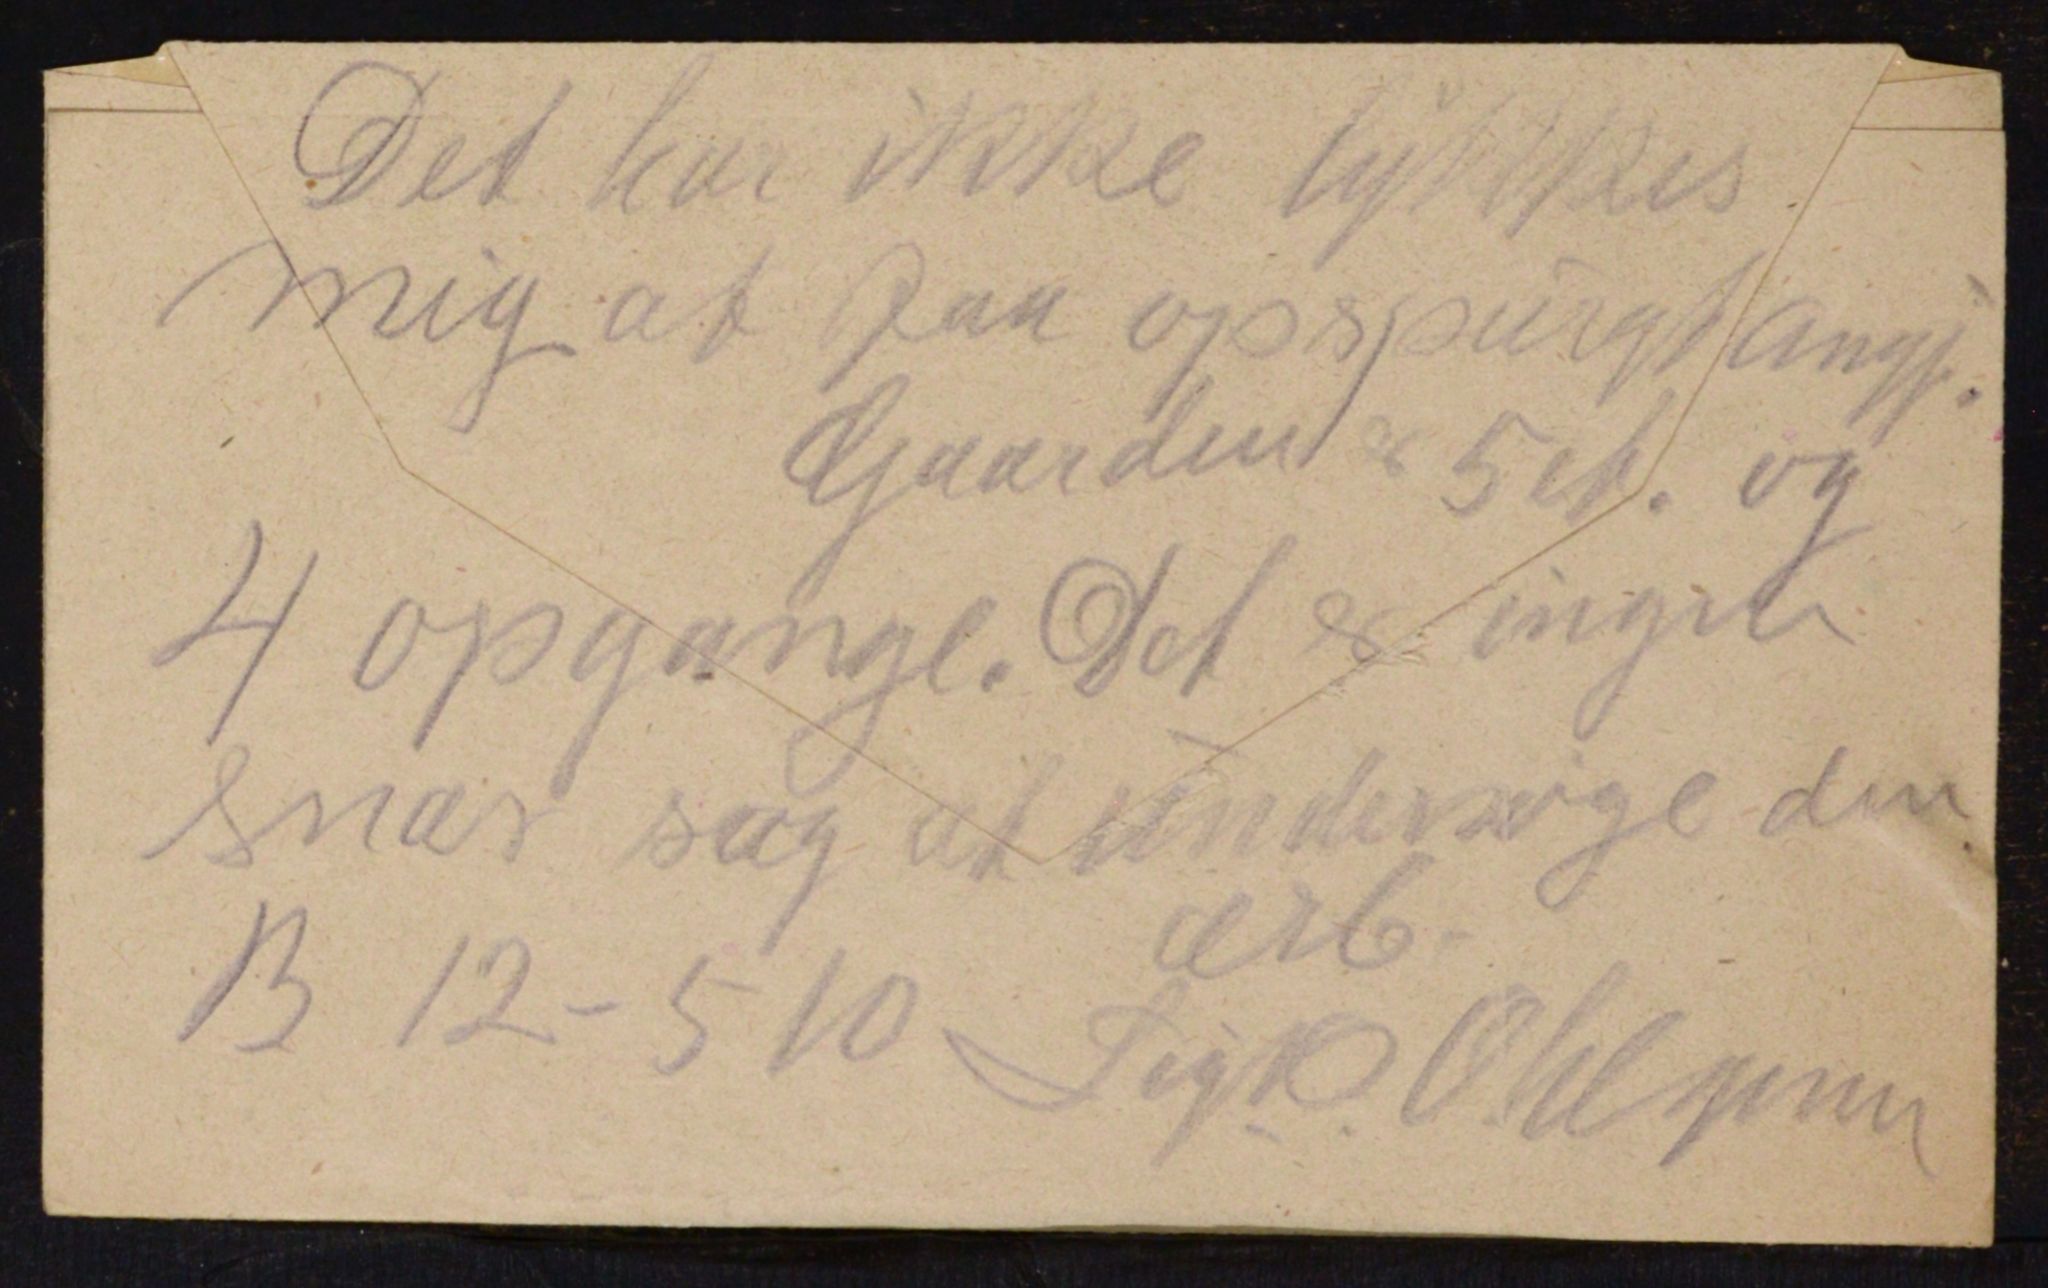 Det har ikke lykkes
mig at faa opspurgt angj.
Gaarden er 5 et. og
4 opgange. Det er ingen
snar sag at undersøge den
ærb.
B 12-5 10